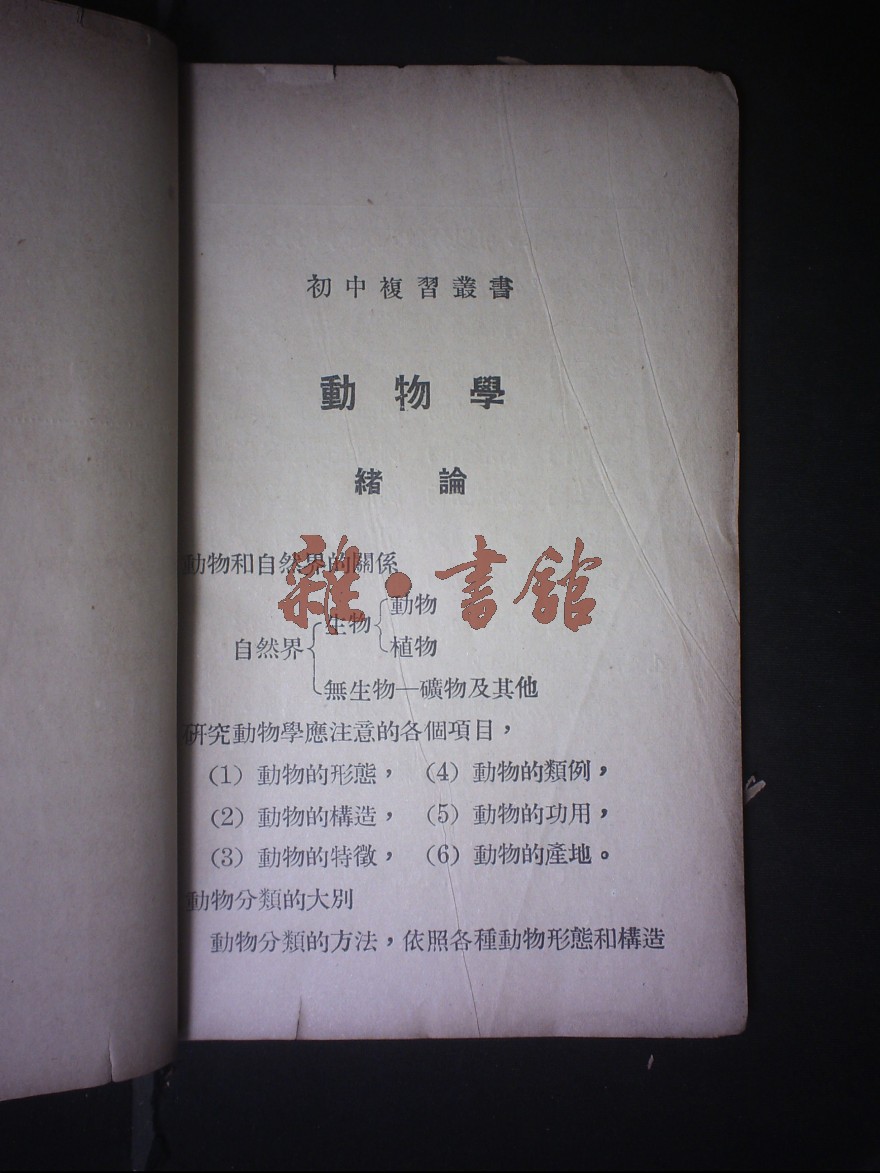 初中複習叢書
動物學
緒論
動物和自然界的關係
自然界
生物
動物
植物
無生物—礦物及其他
研究動物學應注意的各個項目，
(1) 動物的形態， (4) 動物的類例，
(2) 動物的構造， (5) 動物的功用，
(3) 動物的特徵， (6) 動物的產地。
動物分類的大別
動物分類的方法，依照各種動物形態和構造
雜·書館